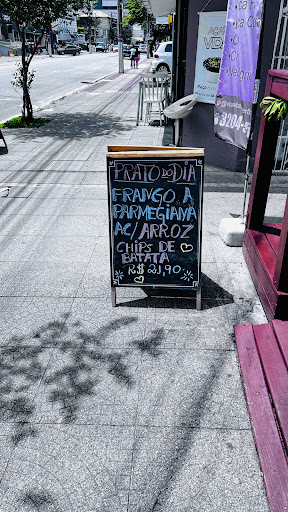 PRATO DO DIA
FRANGO A
PARMEGIANA
AC/ ARROZ
CHIPS DE
BATATA
R$ 21,90
VIDA
3204-